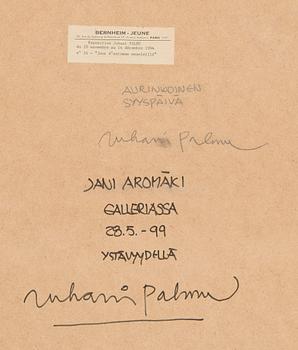 BERNHEIM - JEUNE
Exposition Juhani PALMU
du 29 novembre au 14 décembre 1994
n° 14 - "Jour d'automne ensoleillé"
AURINKOINEN
SYYSPÄIVÄ
Juhani Palmu
JANI AROMÄKI
GALLERIASSA
28.5.-99
YSTÄVYYDELLÄ
Juhani Palmu